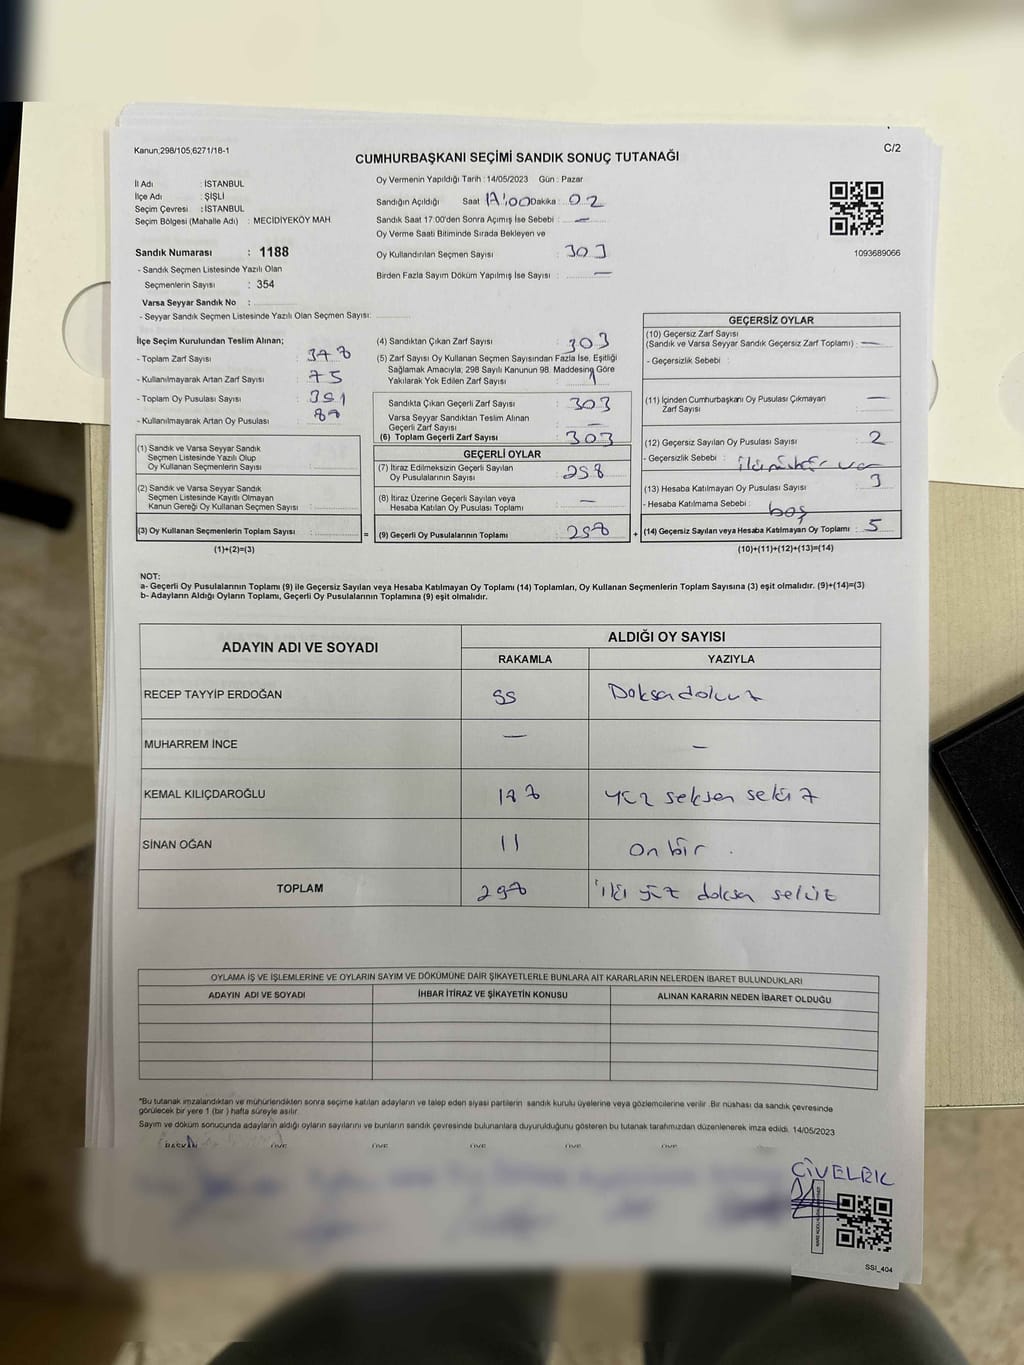 Kanun;298/105,6271/18-1
C/2
CUMHURBAŞKANI SEÇİMİ SANDIK SONUÇ TUTANAĞI
İl Adı : İSTANBUL
İlçe Adı : ŞİŞLİ
Seçim Çevresi : İSTANBUL
Seçim Bölgesi (Mahalle Adı) : MECİDİYEKÖY MAH.
Sandık Numarası : 1188
- Sandık Seçmen Listesinde Yazılı Olan
Seçmenlerin Sayısı : 354
Varsa Seyyar Sandık No :
- Seyyar Sandık Seçmen Listesinde Yazılı Olan Seçmen Sayısı:
Oy Vermenin Yapıldığı Tarih : 14/05/2023 Gün : Pazar
Sandığın Açıldığı Saat 17:00 Dakika : 02
Sandık Saat 17:00'den Sonra Açımış İse Sebebi : —
Oy Verme Saati Bitiminde Sırada Bekleyen ve
Oy Kullandırılan Seçmen Sayısı : 303
Birden Fazla Sayım Döküm Yapılmış İse Sayısı : —
1093689066
İlçe Seçim Kurulundan Teslim Alınan;
- Toplam Zarf Sayısı : 378
- Kullanılmayarak Artan Zarf Sayısı : 75
- Toplam Oy Pusulası Sayısı : 391
- Kullanılmayarak Artan Oy Pusulası : 88
(1) Sandık ve Varsa Seyyar Sandık
Seçmen Listesinde Yazılı Olup
Oy Kullanan Seçmenlerin Sayısı :
(2) Sandık ve Varsa Seyyar Sandık
Seçmen Listesinde Kayıtlı Olmayan
Kanun Gereği Oy Kullanan Seçmen Sayısı :
(3) Oy Kullanan Seçmenlerin Toplam Sayısı :
(1)+(2)=(3)
(4) Sandıktan Çıkan Zarf Sayısı : 303
(5) Zarf Sayısı Oy Kullanan Seçmen Sayısından Fazla İse, Eşitliği
Sağlamak Amacıyla, 298 Sayılı Kanunun 98. Maddesine Göre
Yakılarak Yok Edilen Zarf Sayısı :
Sandıkta Çıkan Geçerli Zarf Sayısı : 303
Varsa Seyyar Sandıktan Teslim Alınan
Geçerli Zarf Sayısı : —
(6) Toplam Geçerli Zarf Sayısı : 303
GEÇERLİ OYLAR
(7) İtiraz Edilmeksizin Geçerli Sayılan
Oy Pusulalarının Sayısı : 298
(8) İtiraz Üzerine Geçerli Sayılan veya
Hesaba Katılan Oy Pusulası Toplamı : —
= (9) Geçerli Oy Pusulalarının Toplamı : 298 +
GEÇERSİZ OYLAR
(10) Geçersiz Zarf Sayısı
(Sandık ve Varsa Seyyar Sandık Geçersiz Zarf Toplamı) : —
- Geçersizlik Sebebi :
(11) İçinden Cumhurbaşkanı Oy Pusulası Çıkmayan
Zarf Sayısı : —
(12) Geçersiz Sayılan Oy Pusulası Sayısı : 2
- Geçersizlik Sebebi : iki mühür var
(13) Hesaba Katılmayan Oy Pusulası Sayısı : 3
- Hesaba Katılmama Sebebi : boş
(14) Geçersiz Sayılan veya Hesaba Katılmayan Oy Toplamı : 5
(10)+(11)+(12)+(13)=(14)
NOT:
a- Geçerli Oy Pusulalarının Toplamı (9) ile Geçersiz Sayılan veya Hesaba Katılmayan Oy Toplamı (14) Toplamları, Oy Kullanan Seçmenlerin Toplam Sayısına (3) eşit olmalıdır. (9)+(14)=(3)
b- Adayların Aldığı Oyların Toplamı, Geçerli Oy Pusulalarının Toplamına (9) eşit olmalıdır.
ADAYIN ADI VE SOYADI
ALDIĞI OY SAYISI
RAKAMLA YAZIYLA
RECEP TAYYİP ERDOĞAN 99 Doksadokuz
MUHARREM İNCE — —
KEMAL KILIÇDAROĞLU 188 yüz seksen sekiz
SİNAN OĞAN 11 on bir .
TOPLAM 298 iki yüz doksa sekiz
OYLAMA İŞ VE İŞLEMLERİNE VE OYLARIN SAYIM VE DÖKÜMÜNE DAİR ŞİKAYETLERLE BUNLARA AİT KARARLARIN NELERDEN İBARET BULUNDUKLARI
ADAYIN ADI VE SOYADI İHBAR İTİRAZ VE ŞİKAYETİN KONUSU ALINAN KARARIN NEDEN İBARET OLDUĞU
*Bu tutanak imzalandıktan ve mühürlendikten sonra seçime katılan adayların ve talep eden siyasi partilerin sandık kurulu üyelerine veya gözlemcilerine verilir. Bir nüshası da sandık çevresinde
görülecek bir yere 1 (bir ) hafta süreyle asılır.
Sayım ve döküm sonucunda adayların aldığı oyların sayılarını ve bunların sandık çevresinde bulunanlara duyurulduğunu gösteren bu tutanak tarafımızdan düzenlenerek imza edildi. 14/05/2023
BAŞKAN ÜYE ÜYE ÜYE ÜYE
CİVELEK
SSI_404